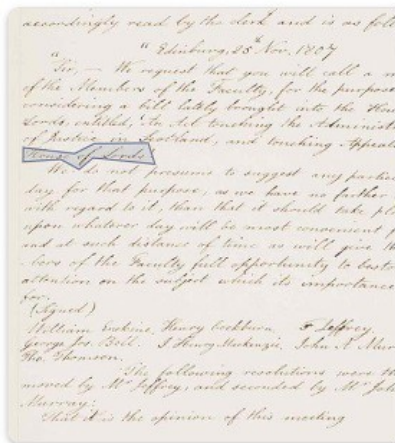 accordingly read by the clerk and is as foll
" "Edinburg, 25th Nov. 1807
"Sir, — We request that you will call a m
of the Members of the Faculty, for the purpose
considering a bill lately brought into the Hou
Lords, entitled, 'An Act touching the Administ
of Justice in Scotland, and touching Appeals
House of Lords
We do not presume to suggest any particu
day for that purpose, as we have no farther
with regard to it, than that it should take pl
upon whatever day will be most convenient f
and at such distance of time as will give th
bers of the Faculty full opportunity to besto
attention on the subject which its importance
for.
(Signed)
William Erskine, Henry Cockburn. F Jeffrey.
George Jos. Bell. J Henry Mackenzie. John A Mur
Tho. Thomson.
The following resolutions were th
moved by Mr Jeffrey, and seconded by Mr Joh
Murray:
That it is the opinion of this meeting